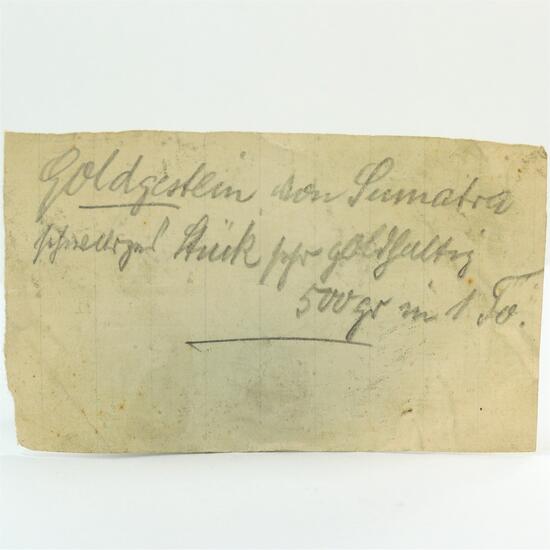 Goldgestein von Sumatra
schwarzes Stück sehr goldhaltig
500gr in 1 To.